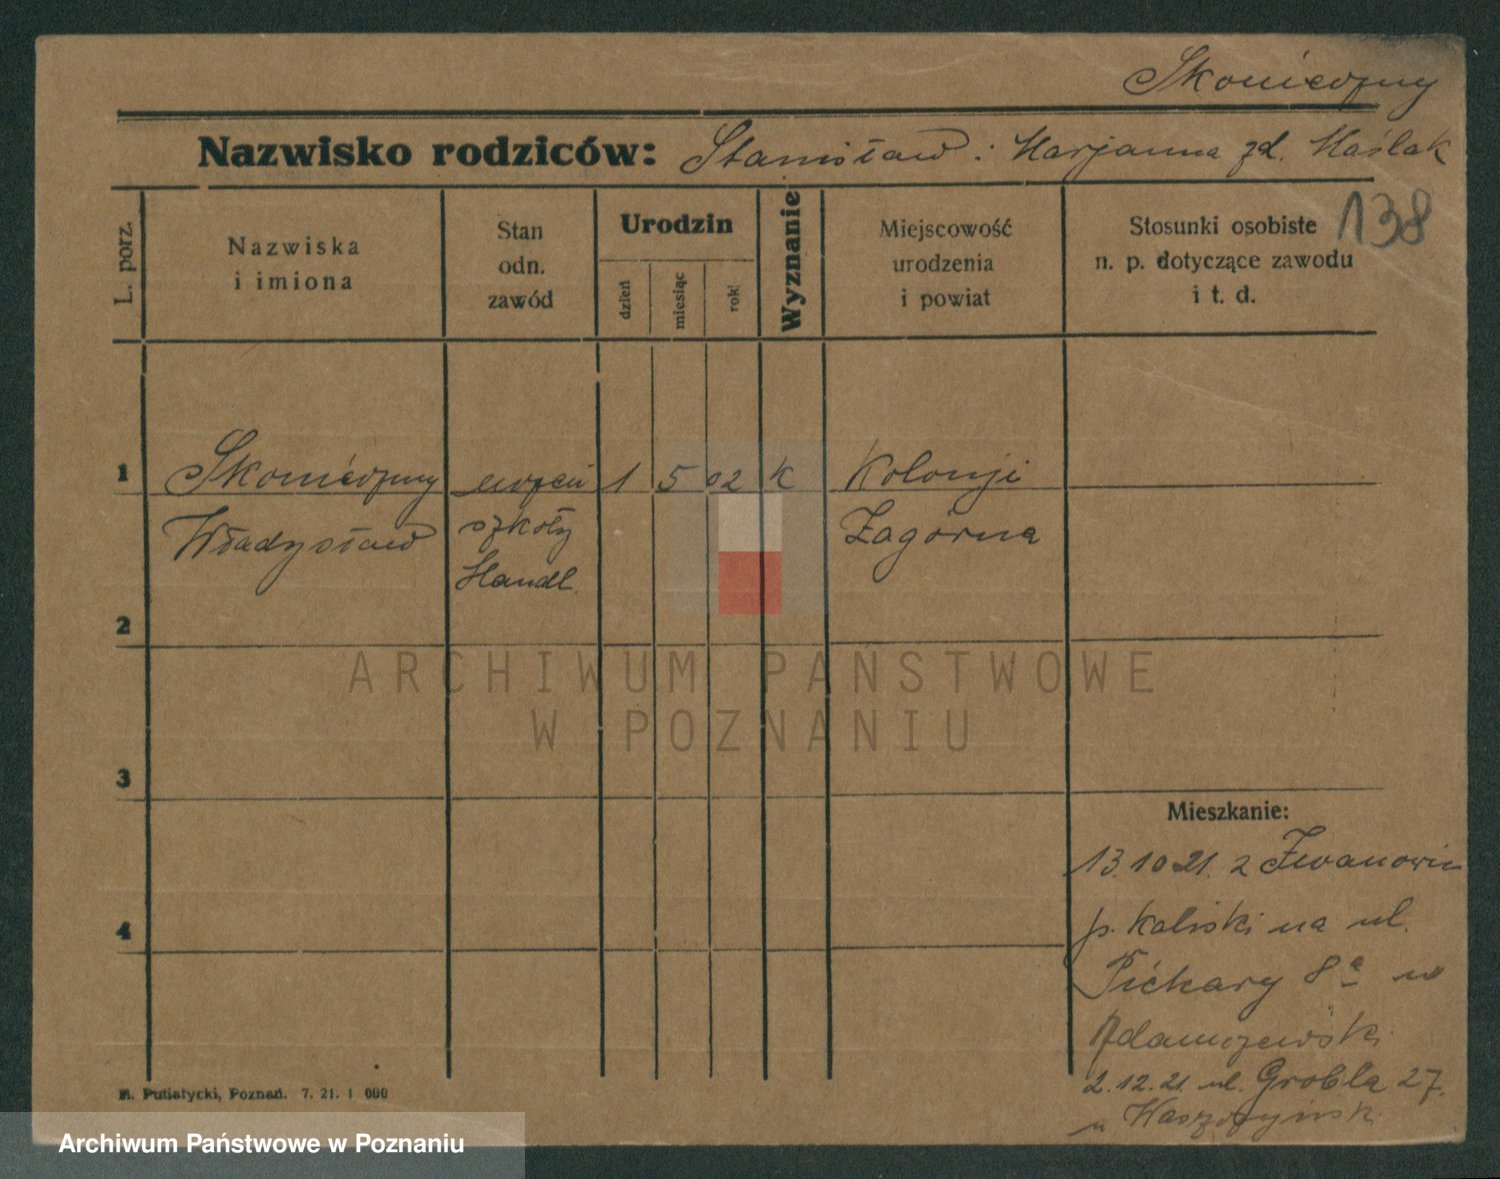 Skonieczny
Nazwisko rodziców: Stanisław i Marjanna zd. Maślak
138
L. porz.
Nazwiska
i imiona
Stan
odn.
zawód
Urodzin
dzień
miesiąc
rok
Wyznanie
Miejscowość
urodzenia
i powiat
Stosunki osobiste
n. p. dotyczące zawodu
i t. d.
1
Skonieczny uczeń 1 5 02 k Kolonji
Władysław szkoły Zagórna
Handl.
2
ARCHIWUM PAŃSTWOWE
W POZNANIU
3
Mieszkanie:
13.10 21. z Iwanowic
p. Kaliski na ul.
4
Piekary 8a u
Adamczewski
2.12.21. ul. Grobla 27.
u
M. Putiatycki, Poznań. 7. 21. 1 000
Archiwum Państwowe w Poznaniu